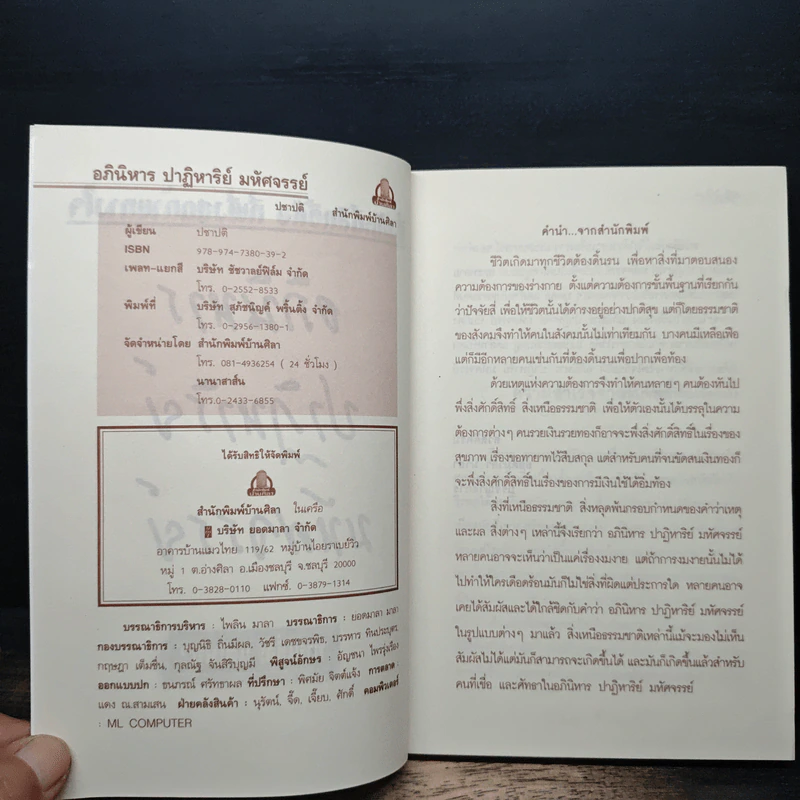 อภินิหาร ปาฏิหาริย์ มหัศจรรย์
ปชาปติ
สำนักพิมพ์บ้านศิลา
ผู้เขียน ปชาปติ
ISBN 978-974-7380-39-2
เพลท-แยกสี บริษัท ชัชวาลย์ฟิล์ม จำกัด
โทร. 0-2552-8533
พิมพ์ที่ บริษัท สุภัชนิญค์ พริ้นติ้ง จำกัด
โทร. 0-2956-1380-1
จัดจำหน่ายโดย สำนักพิมพ์บ้านศิลา
โทร. 081-4936254 ( 24 ชั่วโมง )
นานาสาส์น
โทร.0-2433-6855
ได้รับสิทธิให้จัดพิมพ์
สำนักพิมพ์บ้านศิลา ในเครือ
บริษัท ยอดมาลา จำกัด
อาคารบ้านแมวไทย 119/62 หมู่บ้านไอยราเบย์วิว
หมู่ 1 ต.อ่างศิลา อ.เมืองชลบุรี จ.ชลบุรี 20000
โทร. 0-3828-0110 แฟกซ์. 0-3879-1314
บรรณาธิการบริหาร : ไพลิน มาลา บรรณาธิการ : ยอดมาลา มาลา
กองบรรณาธิการ : บุญนิธิ ถิ่นมีผล, วัชรี เดชขจรพิธ, บรรหาร ทินประบุตร,
กฤษฎา เต็มชื่น, กุลณัฐ จันสิริบุญมี พิสูจน์อักษร : อัญชนา ไพรรุ่งเรือง
ออกแบบปก : ธนภรณ์ ศรัทธาผล ที่ปรึกษา : พิศมัย จิตต์แจ้ง การตลาด :
แดง ณ.สามเสน ฝ่ายคลังสินค้า : นุรัตน์, จี๊ด, เจี๊ยบ, ศักดิ์ คอมพิวเตอร์
: ML COMPUTER
คำนำ...จากสำนักพิมพ์
ชีวิตเกิดมาทุกชีวิตต้องดิ้นรน เพื่อหาสิ่งที่มาตอบสนอง
ความต้องการของร่างกาย ตั้งแต่ความต้องการขั้นพื้นฐานที่เรียกกัน
ว่าปัจจัยสี่ เพื่อให้ชีวิตนั้นได้ดำรงอยู่อย่างปกติสุข แต่ก็โดยธรรมชาติ
ของสังคมจึงทำให้คนในสังคมนั้นไม่เท่าเทียมกัน บางคนมีเหลือเฟือ
แต่ก็มีอีกหลายคนเช่นกันที่ต้องดิ้นรนเพื่อปากเพื่อท้อง
ด้วยเหตุแห่งความต้องการจึงทำให้คนหลายๆ คนต้องหันไป
พึ่งสิ่งศักดิ์สิทธิ์ สิ่งเหนือธรรมชาติ เพื่อให้ตัวเองนั้นได้บรรลุในความ
ต้องการต่างๆ คนรวยเงินรวยทองก็อาจจะพึ่งสิ่งศักดิ์สิทธิ์ในเรื่องของ
สุขภาพ เรื่องขอทายาทไว้สืบสกุล แต่สำหรับคนที่จนขัดสนเงินทองก็
จะพึ่งสิ่งศักดิ์สิทธิ์ในเรื่องของการมีเงินใช้ได้อิ่มท้อง
สิ่งที่เหนือธรรมชาติ สิ่งหลุดพ้นกรอบกำหนดของคำว่าเหตุ
และผล สิ่งต่างๆ เหล่านี้จึงเรียกว่า อภินิหาร ปาฏิหาริย์ มหัศจรรย์
หลายคนอาจจะเห็นว่าเป็นแค่เรื่องงมงาย แต่ถ้าการงมงายนั้นไม่ได้
ไปทำให้ใครเดือดร้อนมันก็ไม่ใช่สิ่งที่ผิดแต่ประการใด หลายคนอาจ
เคยได้สัมผัสและได้ใกล้ชิดกับคำว่า อภินิหาร ปาฏิหาริย์ มหัศจรรย์
ในรูปแบบต่างๆ มาแล้ว สิ่งเหนือธรรมชาติเหล่านี้แม้จะมองไม่เห็น
สัมผัสไม่ได้แต่มันก็สามารถจะเกิดขึ้นได้ และมันก็เกิดขึ้นแล้วสำหรับ
คนที่เชื่อ และศัทธาในอภินิหาร ปาฏิหาริย์ มหัศจรรย์